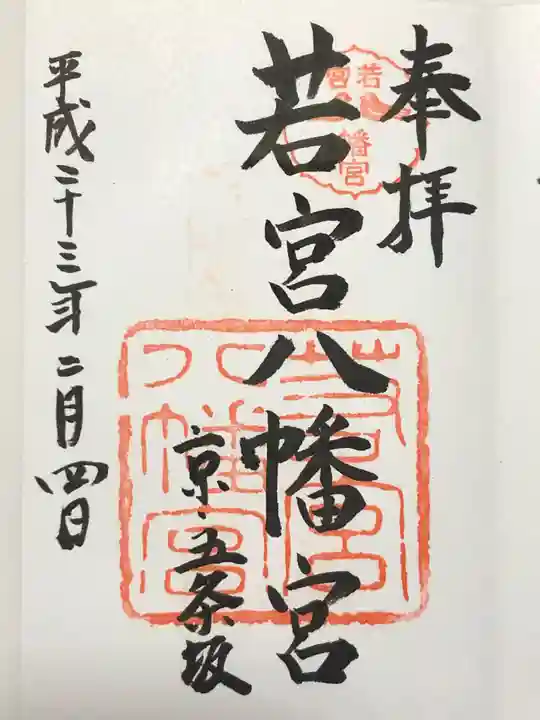 奉拝
若宮八幡宮
京・五条坂
平成二十三年二月四日
若宮
八幡宮
若宮
八幡宮